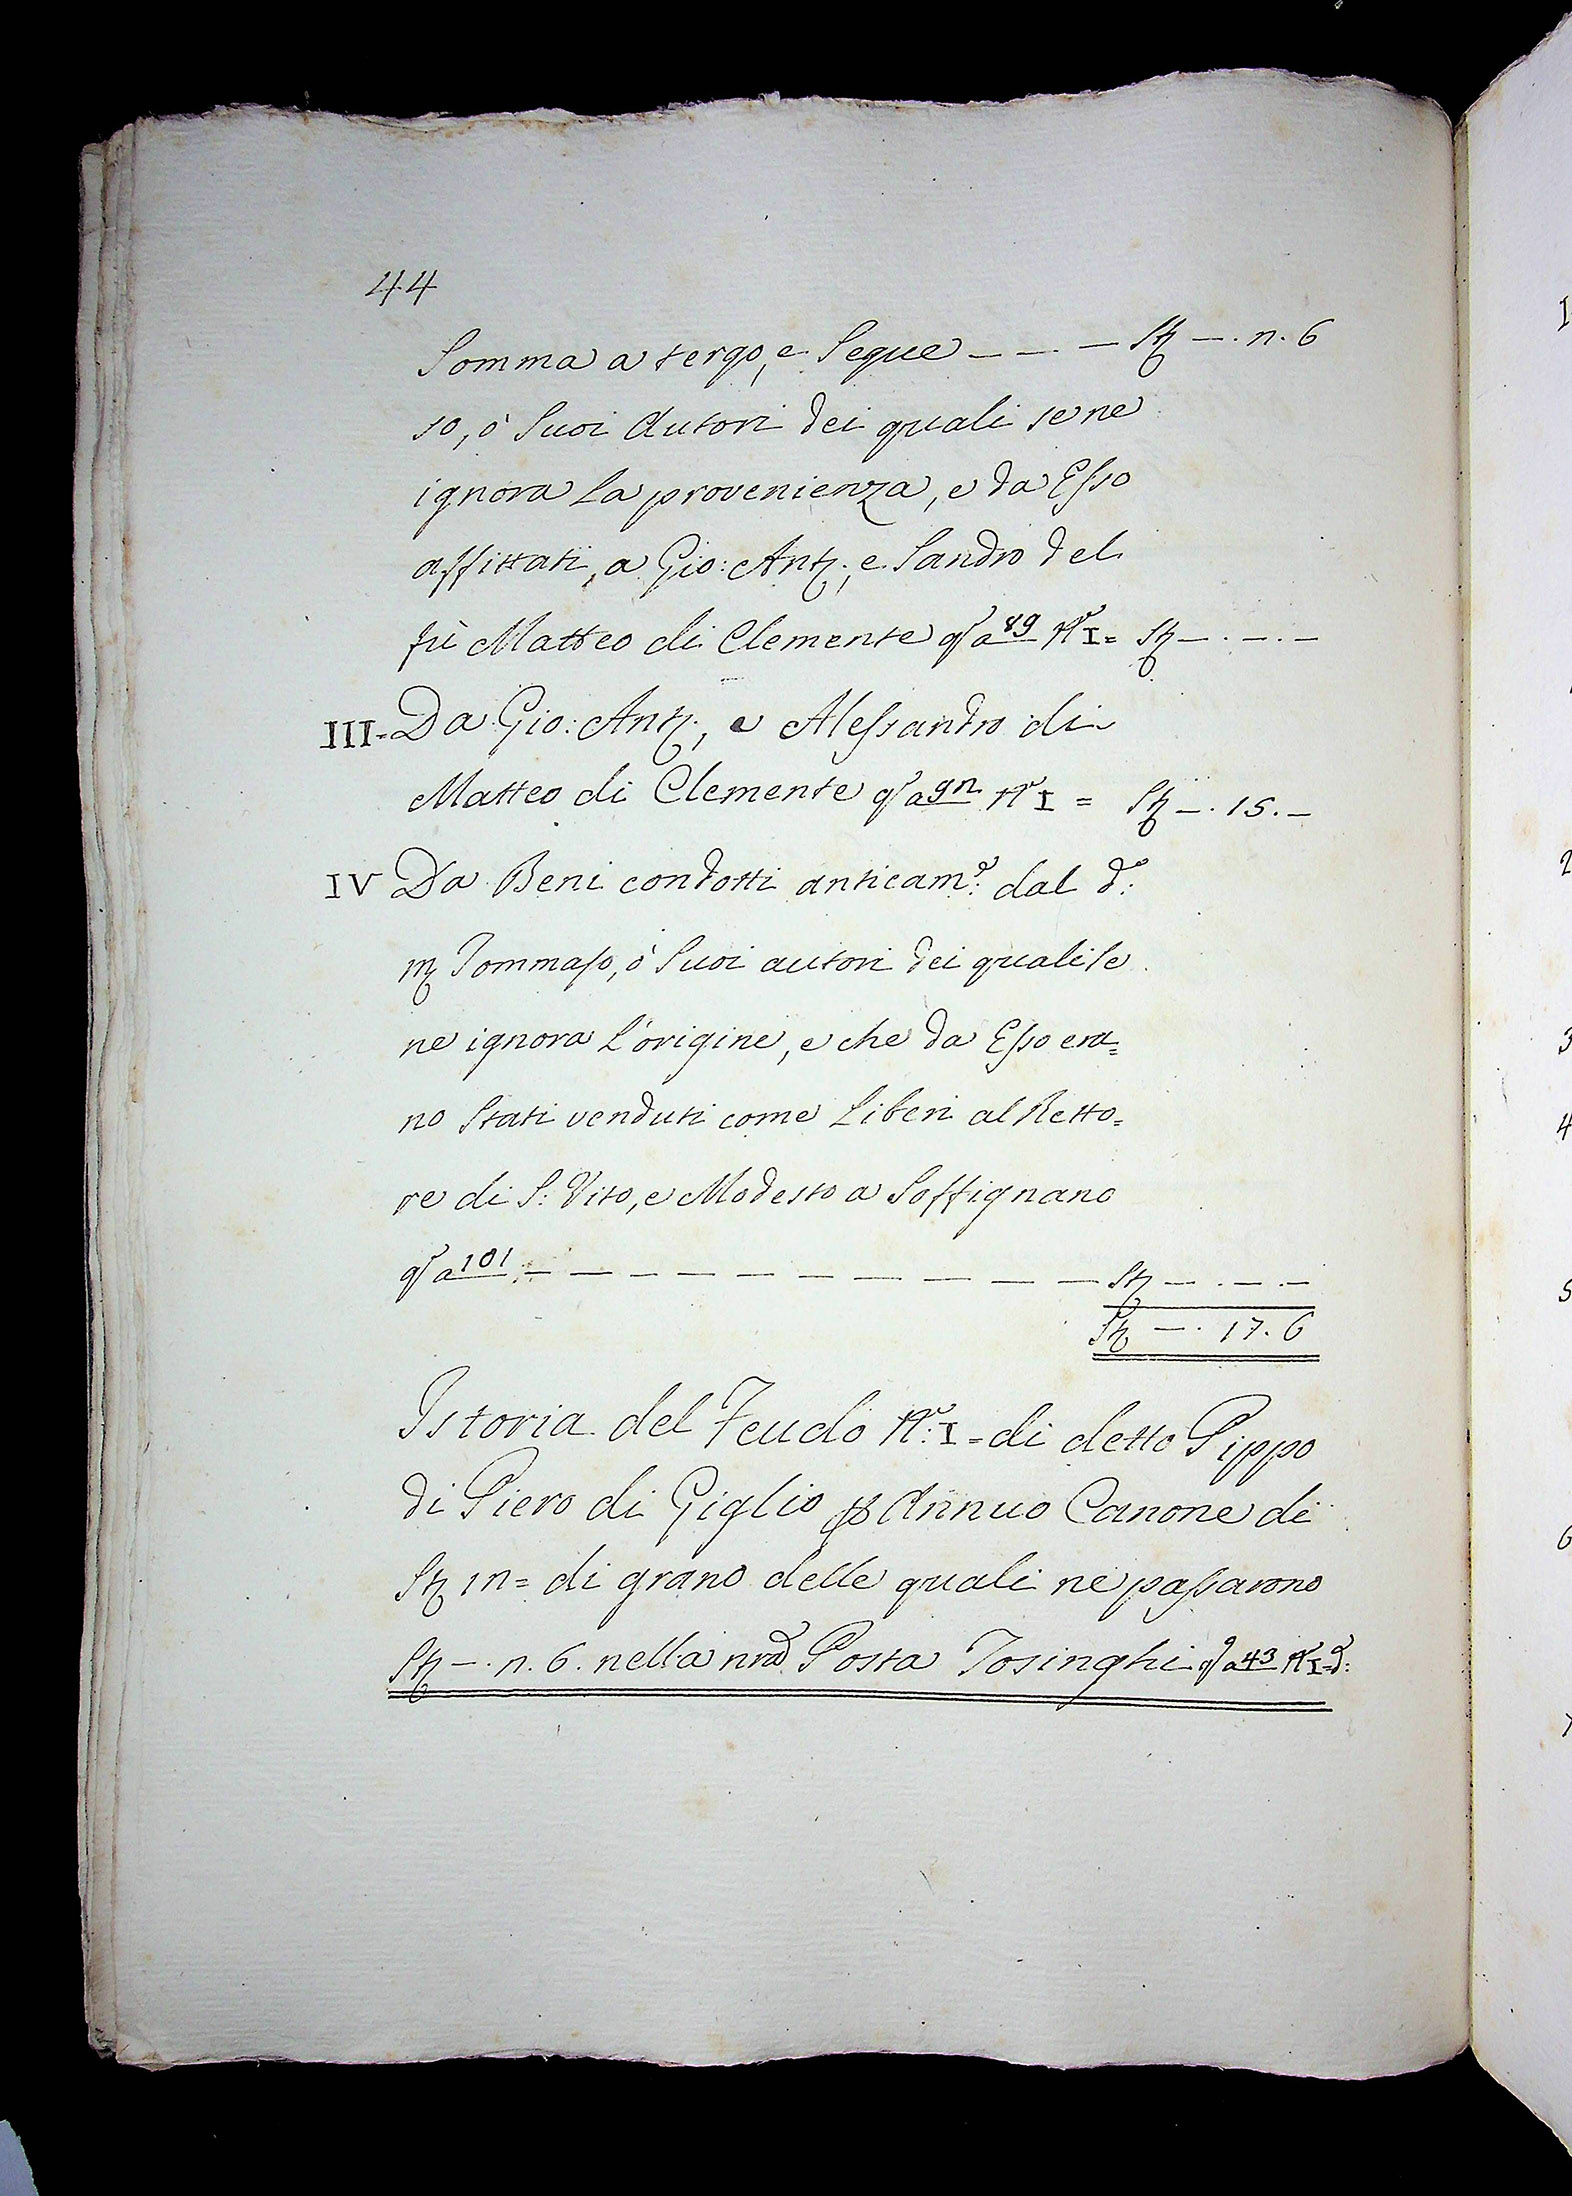 44
Somma a tergo, e Segue — — — St — . n. 6
so, ò Suoi Autori dei quali se ne
ignora La provenienza, e da Esso
affittati, a Gio: Ant:, e Sandro del
fù Matteo di Clemente qº a 89 Nº I = St — . — . —
III = Da Gio: Ant:, e Alessandro di
Matteo di Clemente qº a 9n Nº I = St — . 15 . —
IV Da Beni condotti anticamᵉ: dal dº:
m Tommaso, ò Suoi autori dei quali se
ne ignora L'origine, e che da Esso era=
no Stati venduti come Liberi al Retto=
re di S: Vito, e Modesto a Soffignano
qº a 101 — — — — — — — — — — — St — . — . —
St — . 17 . 6
Istoria del Feudo Nº: I = di detto Pippo
di Piero di Giglio p Annuo Canone di
St 1n = di grano delle quali ne passarono
St — . n. 6. nella nrâ Posta Tosinghi qº a 43 Nº I = dº:
I
2
3
4
5
6
7